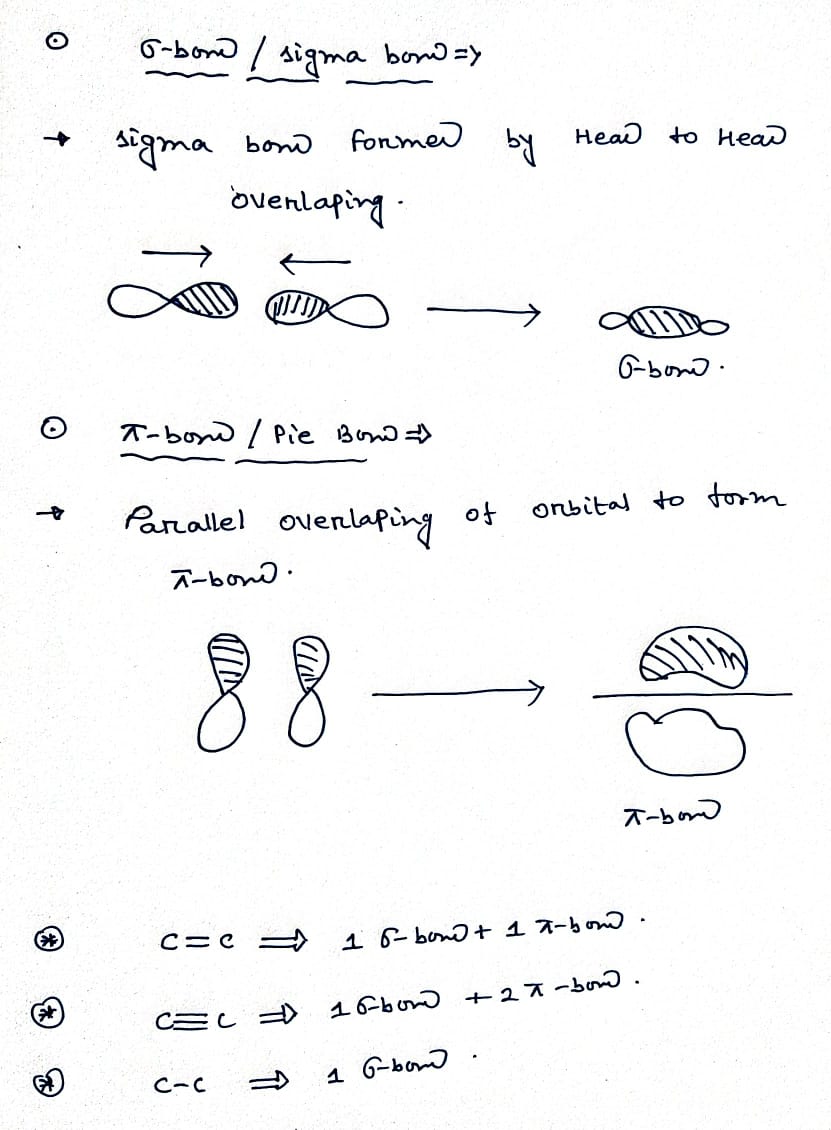 σ-bond / sigma bond =>
→ sigma bond formed by Head to Head
overlaping.
σ-bond.
π-bond / Pie Bond =>
→ Parallel overlaping of orbital to form
π-bond.
π-bond
C=C ⟹ 1 σ-bond + 1 π-bond.
C≡C ⟹ 1 σ-bond + 2 π-bond.
C-C ⟹ 1 σ-bond.